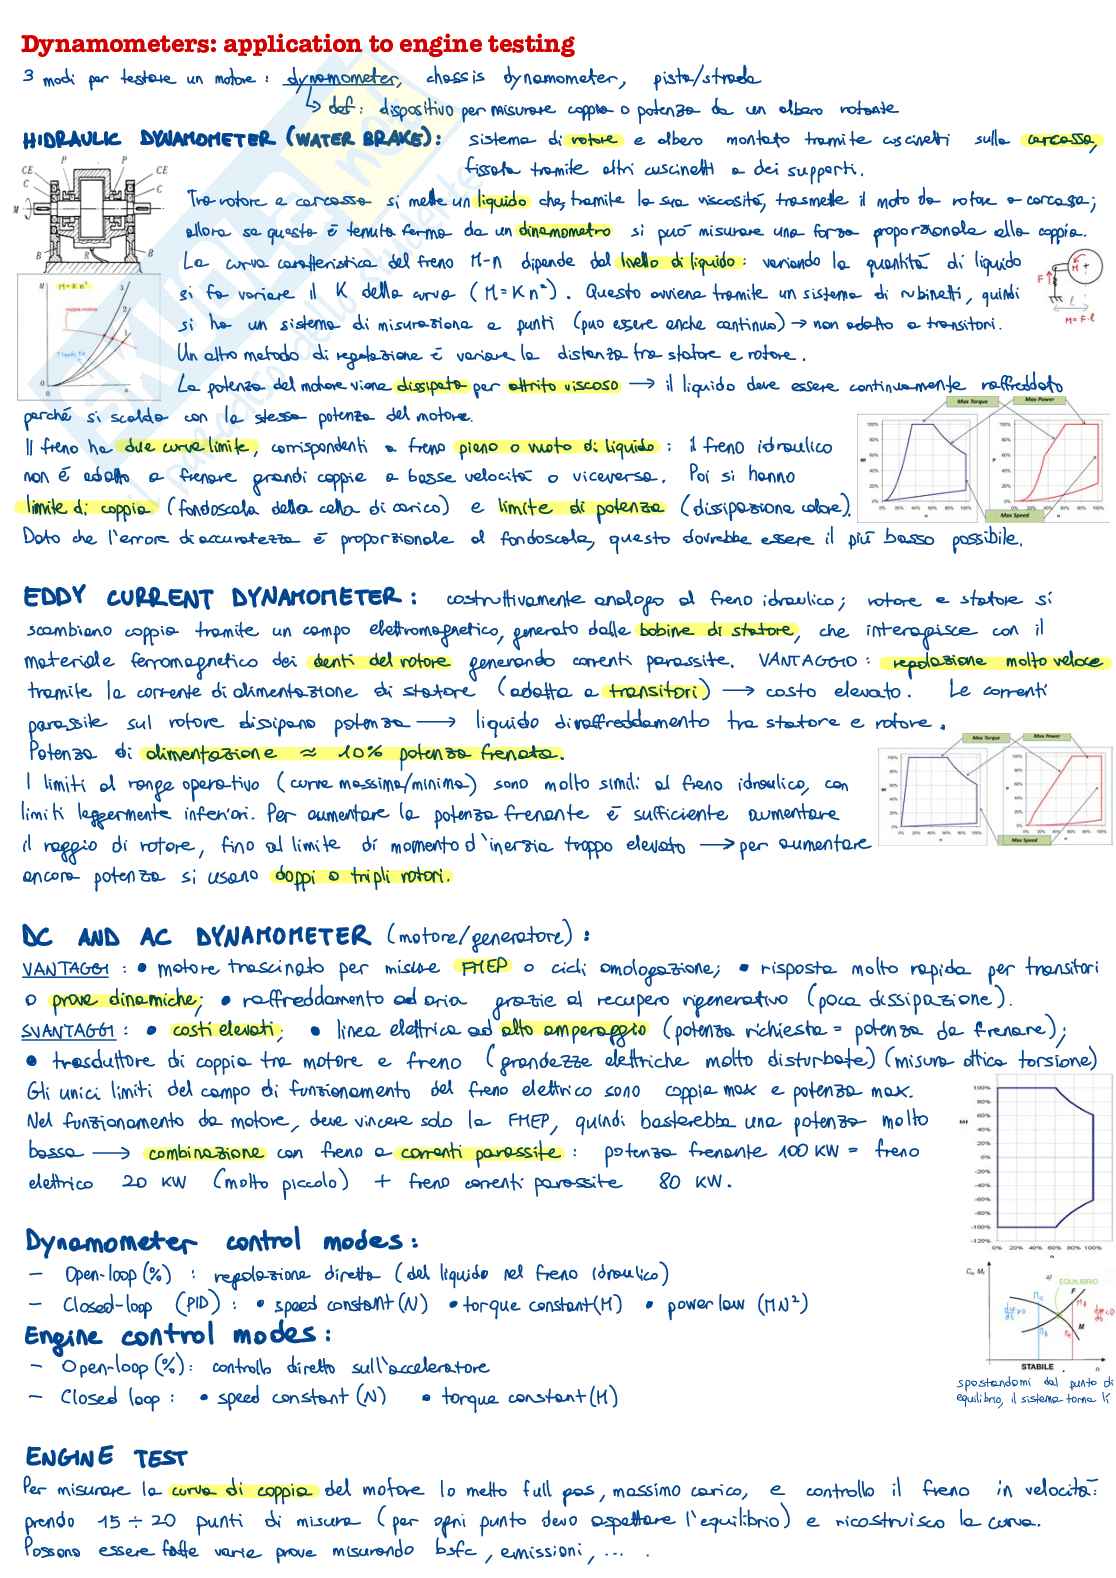 Dynamometers: application to engine testing
3 modi per testare un motore : dynamometer, chassis dynamometer, pista/strada
↳ def : dispositivo per misurare coppia o potenza da un albero rotante
HIDRAULIC DYNAMOMETER (WATER BRAKE): sistema di rotore e albero montato tramite cuscinetti sulla carcassa,
fissata tramite altri cuscinetti a dei supporti.
Tra rotore e carcassa si mette un liquido che, tramite la sua viscosità, trasmette il moto da rotore a carcassa;
allora se questa è tenuta ferma da un dinamometro si può misurare una forza proporzionale alla coppia.
La curva caratteristica del freno M-n dipende dal livello di liquido : variando la quantità di liquido
si fa variare il K della curva (M=Kn²). Questo avviene tramite un sistema di rubinetti, quindi
si ha un sistema di misurazione a punti (può essere anche continuo) → non adatto a transitori.
Un altro metodo di regolazione è variare la distanza tra statore e rotore.
La potenza del motore viene dissipata per attrito viscoso → il liquido deve essere continuamente raffreddato
perché si scalda con la stessa potenza del motore.
Il freno ha due curve limite, corrispondenti a freno pieno o vuoto di liquido : il freno idraulico
non è adatto a frenare grandi coppie a basse velocità o viceversa. Poi si hanno
limite di coppia (fondoscala della cella di carico) e limite di potenza (dissipazione calore).
Dato che l'errore di accuratezza è proporzionale al fondoscala, questo dovrebbe essere il più basso possibile.
P P
CE CE
C C
M
B R B
M
M=Kn²
3
2
1
0
n
F
M +
l
M=F·l
Max Torque Max Power
100%
80%
60%
40%
20%
0%
0% 20% 40% 60% 80% 100%
Max Speed
EDDY CURRENT DYNAMOMETER : costruttivamente analogo al freno idraulico; rotore e statore si
scambiano coppia tramite un campo elettromagnetico, generato dalle bobine di statore, che interagisce con il
materiale ferromagnetico dei denti del rotore generando correnti parassite. VANTAGGIO : regolazione molto veloce
tramite la corrente di alimentazione di statore (adatta a transitori) → costo elevato. Le correnti
parassite sul rotore dissipano potenza → liquido di raffreddamento tra statore e rotore.
Potenza di alimentazione ≈ 10% potenza frenata.
I limiti al range operativo (curve massima/minima) sono molto simili al freno idraulico, con
limiti leggermente inferiori. Per aumentare la potenza frenante è sufficiente aumentare
il raggio di rotore, fino al limite di momento d'inerzia troppo elevato → per aumentare
ancora potenza si usano doppi o tripli rotori.
Max Torque Max Power
100%
80%
60%
40%
20%
0%
0% 20% 40% 60% 80% 100%
Max Speed
DC AND AC DYNAMOMETER (motore/generatore) :
VANTAGGI : • motore trascinato per misure FMEP o cicli omologazione; • risposta molto rapida per transitori
o prove dinamiche; • raffreddamento ad aria grazie al recupero rigenerativo (poca dissipazione).
SVANTAGGI : • costi elevati; • linea elettrica ad alto amperaggio (potenza richiesta = potenza da frenare);
• trasduttore di coppia tra motore e freno (grandezze elettriche molto disturbate) (misura ottica torsione)
Gli unici limiti del campo di funzionamento del freno elettrico sono coppia max e potenza max.
Nel funzionamento da motore, deve vincere solo la FMEP, quindi basterebbe una potenza molto
bassa → combinazione con freno a correnti parassite : potenza frenante 100 KW = freno
elettrico 20 KW (molto piccolo) + freno correnti parassite 80 KW.
100%
80%
60%
40%
20%
0%
-20%
-40%
-60%
-80%
-100%
-120%
0% 20% 40% 60% 80% 100%
n
Dynamometer control modes :
– Open-loop (%) : regolazione diretta (del liquido nel freno idraulico)
– Closed-loop (PID) : • speed constant (N) • torque constant (M) • power law (MN²)
Engine control modes :
– Open-loop (%) : controllo diretto sull'acceleratore
– Closed loop : • speed constant (N) • torque constant (M)
EQUILIBRIO
F
M
STABILE
n
spostandomi dal punto di
equilibrio, il sistema torna lì
ENGINE TEST
Per misurare la curva di coppia del motore lo metto full gas, massimo carico, e controllo il freno in velocità:
prendo 15 ÷ 20 punti di misura (per ogni punto devo aspettare l'equilibrio) e ricostruisco la curva.
Possono essere fatte varie prove misurando bsfc, emissioni, ... .